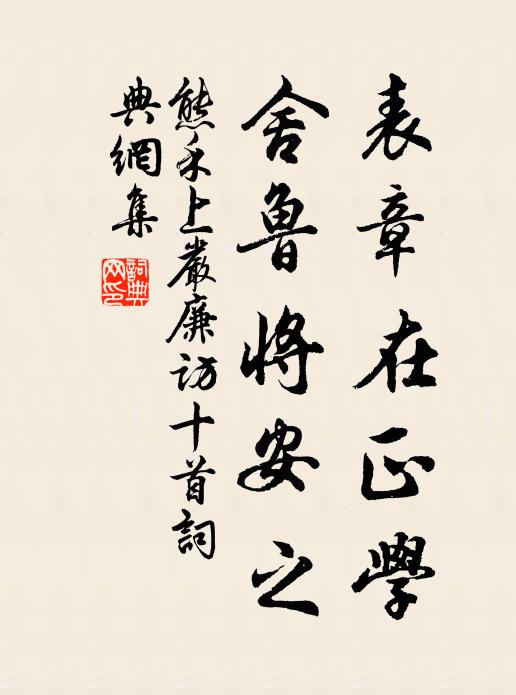 表章在正學
舍魯將安之
熊禾上嚴廉訪十首詞
典網集
詞典
网印